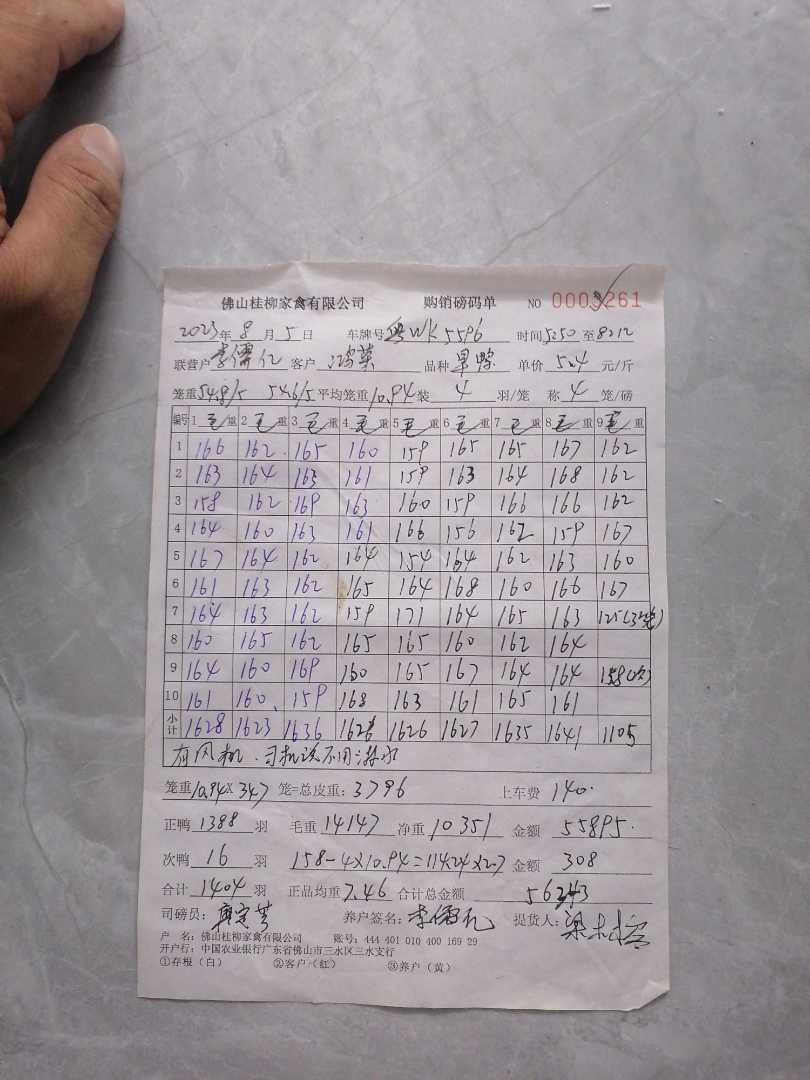 佛山桂柳家禽有限公司 购销磅码单 NO 0003261
2023年8月5日 车牌号粤WK5596 时间5250至8212
联营户李儒亿 客户鸿英 品种单鸭 单价5.4元/斤
笼重54.8/5 54.6/5平均笼重10.94装4羽/笼 称4笼/磅
编号 1毛重 2毛重 3毛重 4毛重 5毛重 6毛重 7毛重 8毛重 9毛重
1 166 162 165 160 159 165 165 167 162
2 163 164 163 161 159 163 164 168 162
3 158 162 169 163 160 159 166 166 162
4 164 160 163 161 166 156 162 159 167
5 167 164 162 164 154 164 162 163 160
6 161 163 162 165 164 168 160 166 167
7 164 163 162 159 171 164 165 163 125(3笼)
8 160 165 162 165 165 160 162 164
9 164 160 169 160 165 167 164 164 158(次)
10 161 160 159 168 163 161 165 161
小计 1628 1623 1636 1626 1626 1627 1635 1641 1105
有风机.司机说不用淋水
笼重10.94×347笼=总皮重:3796 上车费140.
正鸭1388羽 毛重14147净重10351金额55895.
次鸭16羽 158-4×10.94=114.24×2.7金额308
合计1404羽 正品均重7.46合计总金额56243
司磅员: 养户签名:李儒亿 提货人:
户 名:佛山桂柳家禽有限公司 账号:444 401 010 400 169 29
开户行:中国农业银行广东省佛山市三水区三水支行
①存根(白) ②客户(红) ③养户(黄)